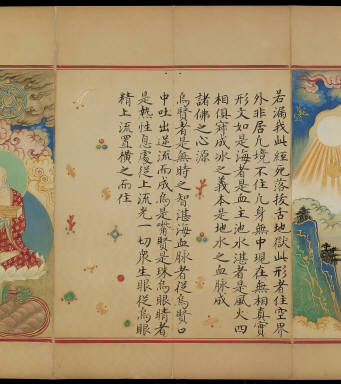 若漏我此經死落拔舌地獄此形者住空界
外非居凡境不住凡身無中現在無相真實
形文如是海者是血主池水湛者是風火四
相俱寂成冰之義本是地水之血脉成
諸佛之心源
烏賢者是無時之智湛海血脉者從烏賢口
中吐出逆流而成烏是賢是珠烏眼睛者
是熱性息處從上流光一切衆生眼從烏眼
精上流置橫之而住